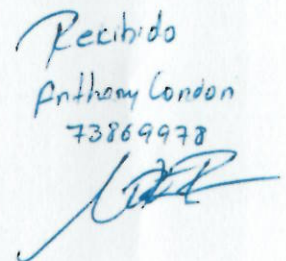 Recibido
Anthony Condon
73869978